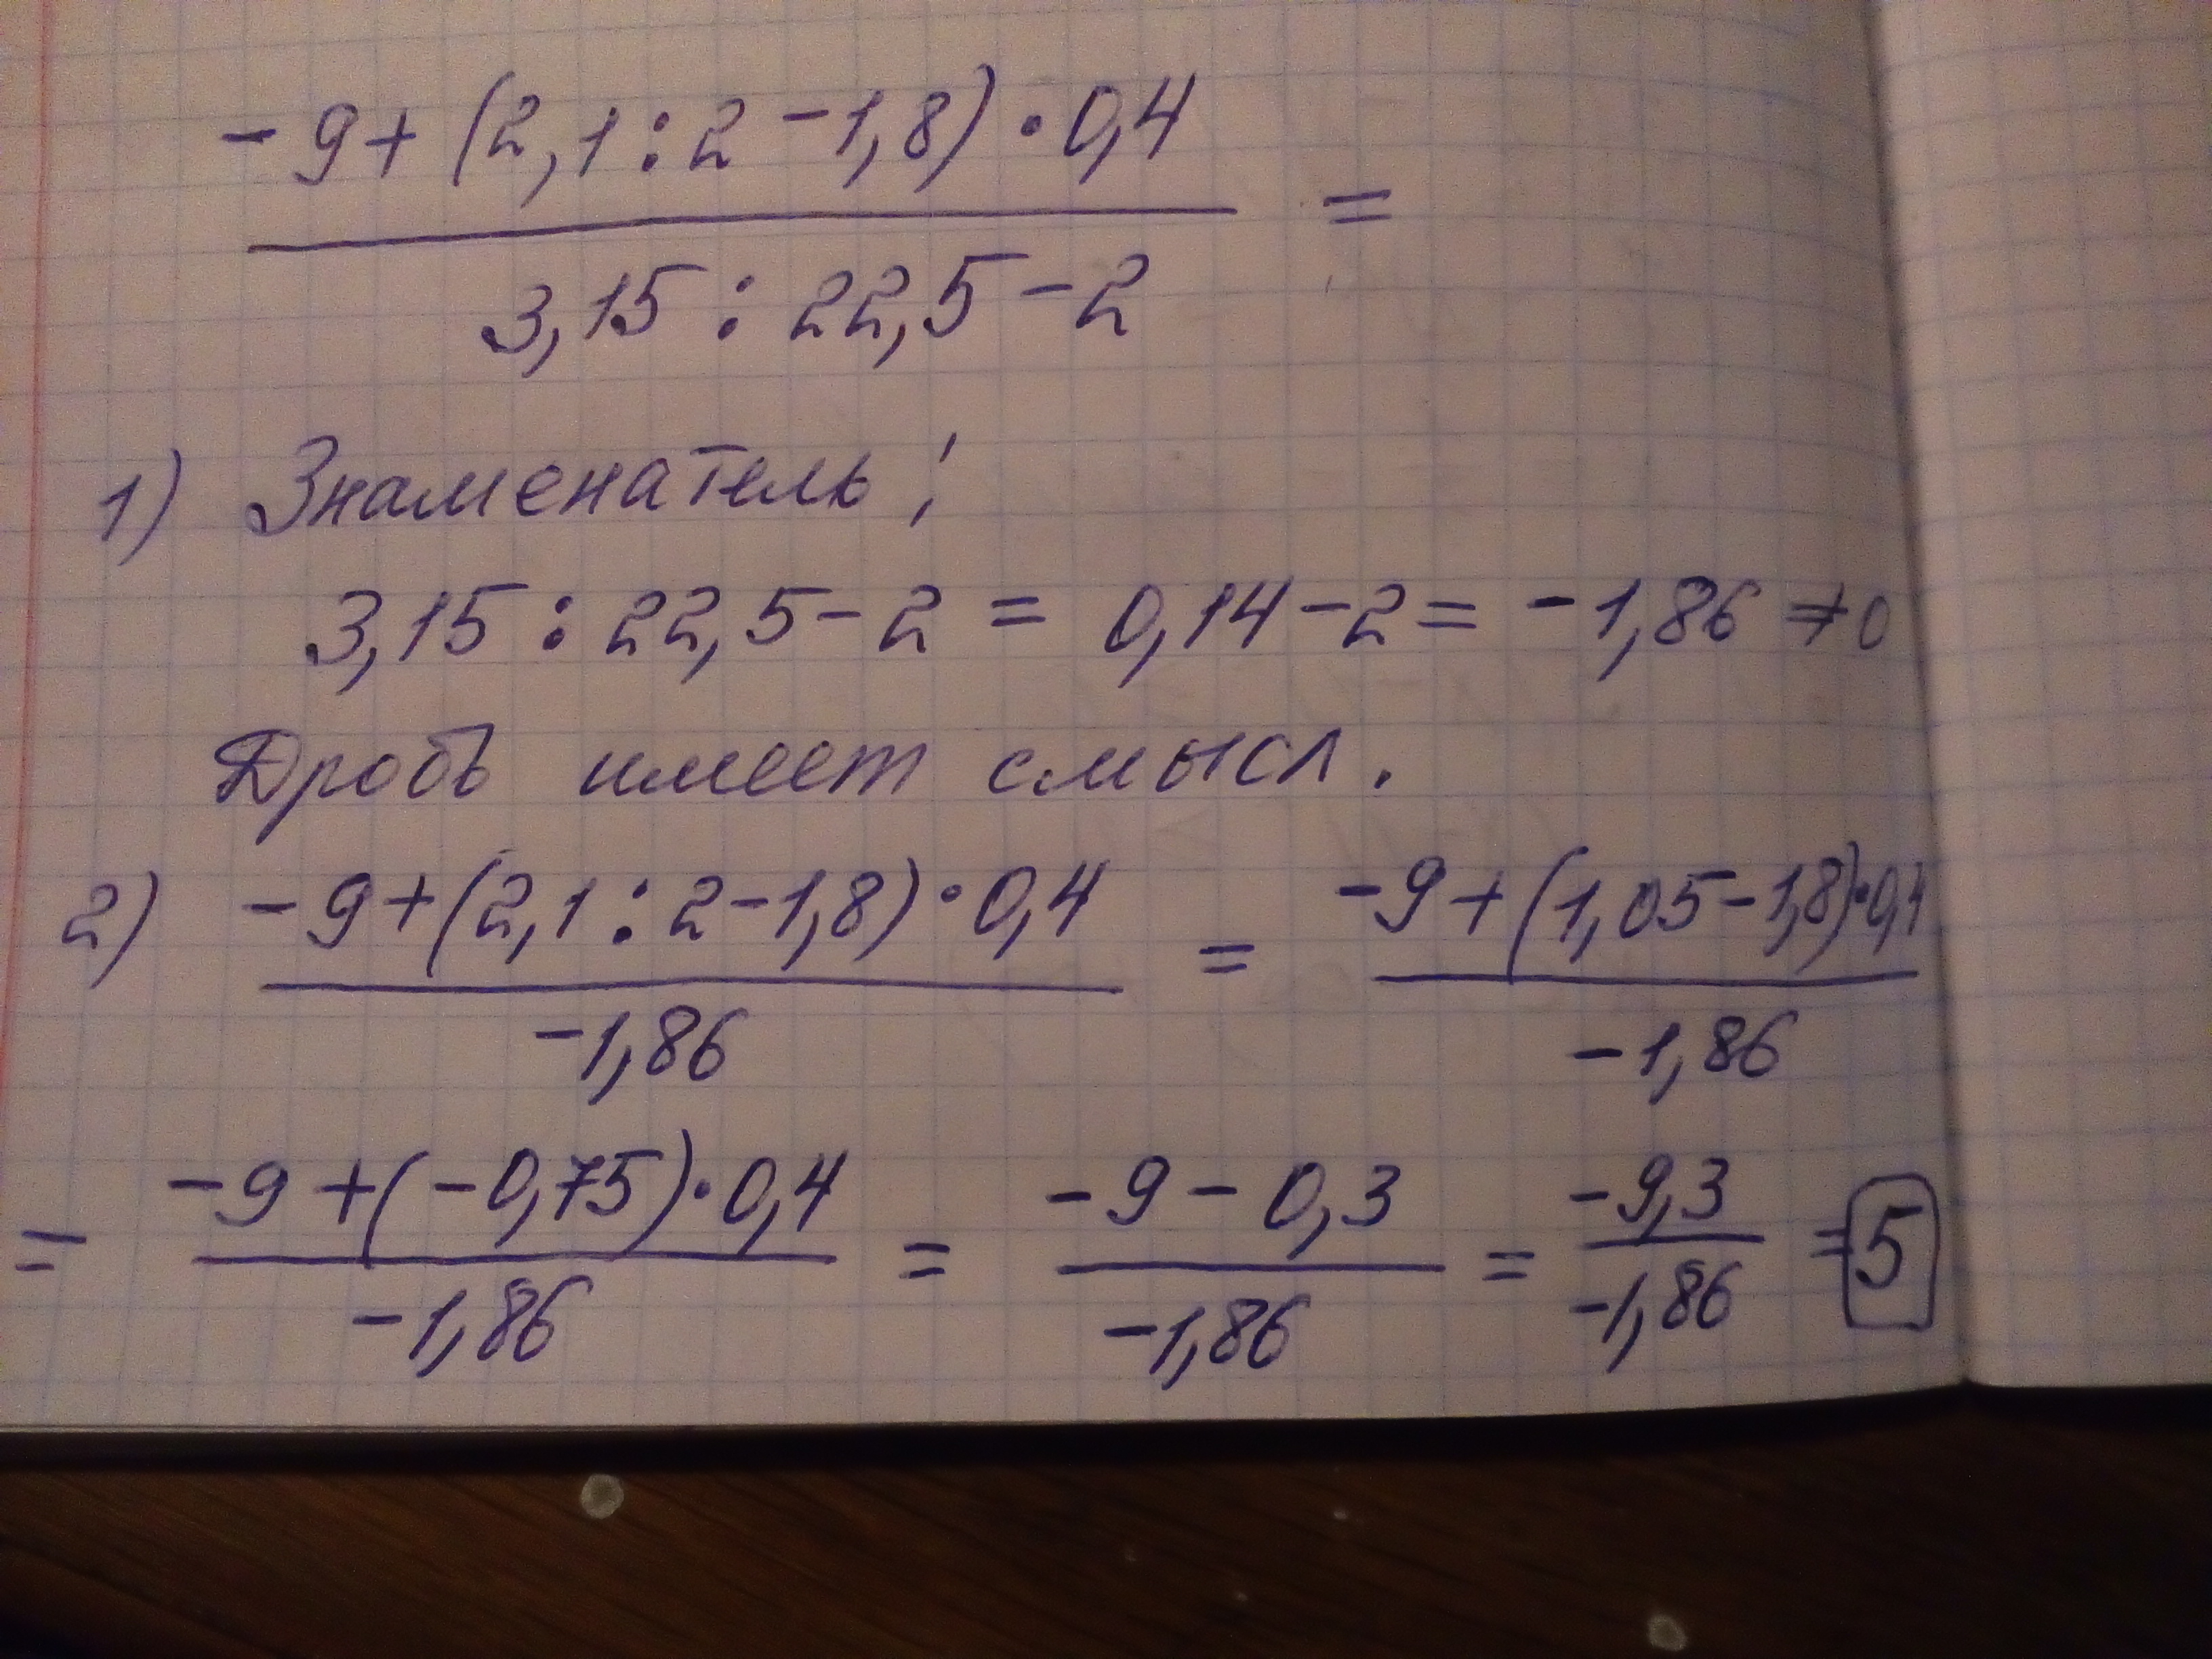 -9+(2,1:2-1,8)·0,4
=
3,15:22,5-2
1) Знаменатель:
3,15:22,5-2=0,14-2=-1,86≠0
Дробь имеет смысл.
2) -9+(2,1:2-1,8)·0,4 = -9+(1,05-1,8)·0,4
-1,86 -1,86
= -9+(-0,75)·0,4 = -9-0,3 = -9,3 =5
-1,86 -1,86 -1,86